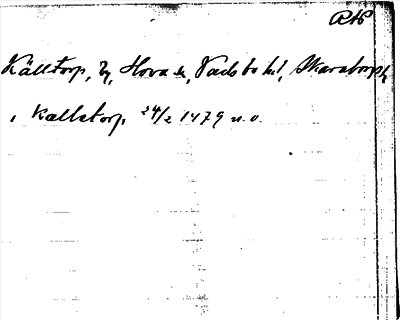 RAP
Källtorp, By, Hova sn, Vadsbo hd, Skaraborgs l.
i Kalletorp. 24/2 1479 u.o.